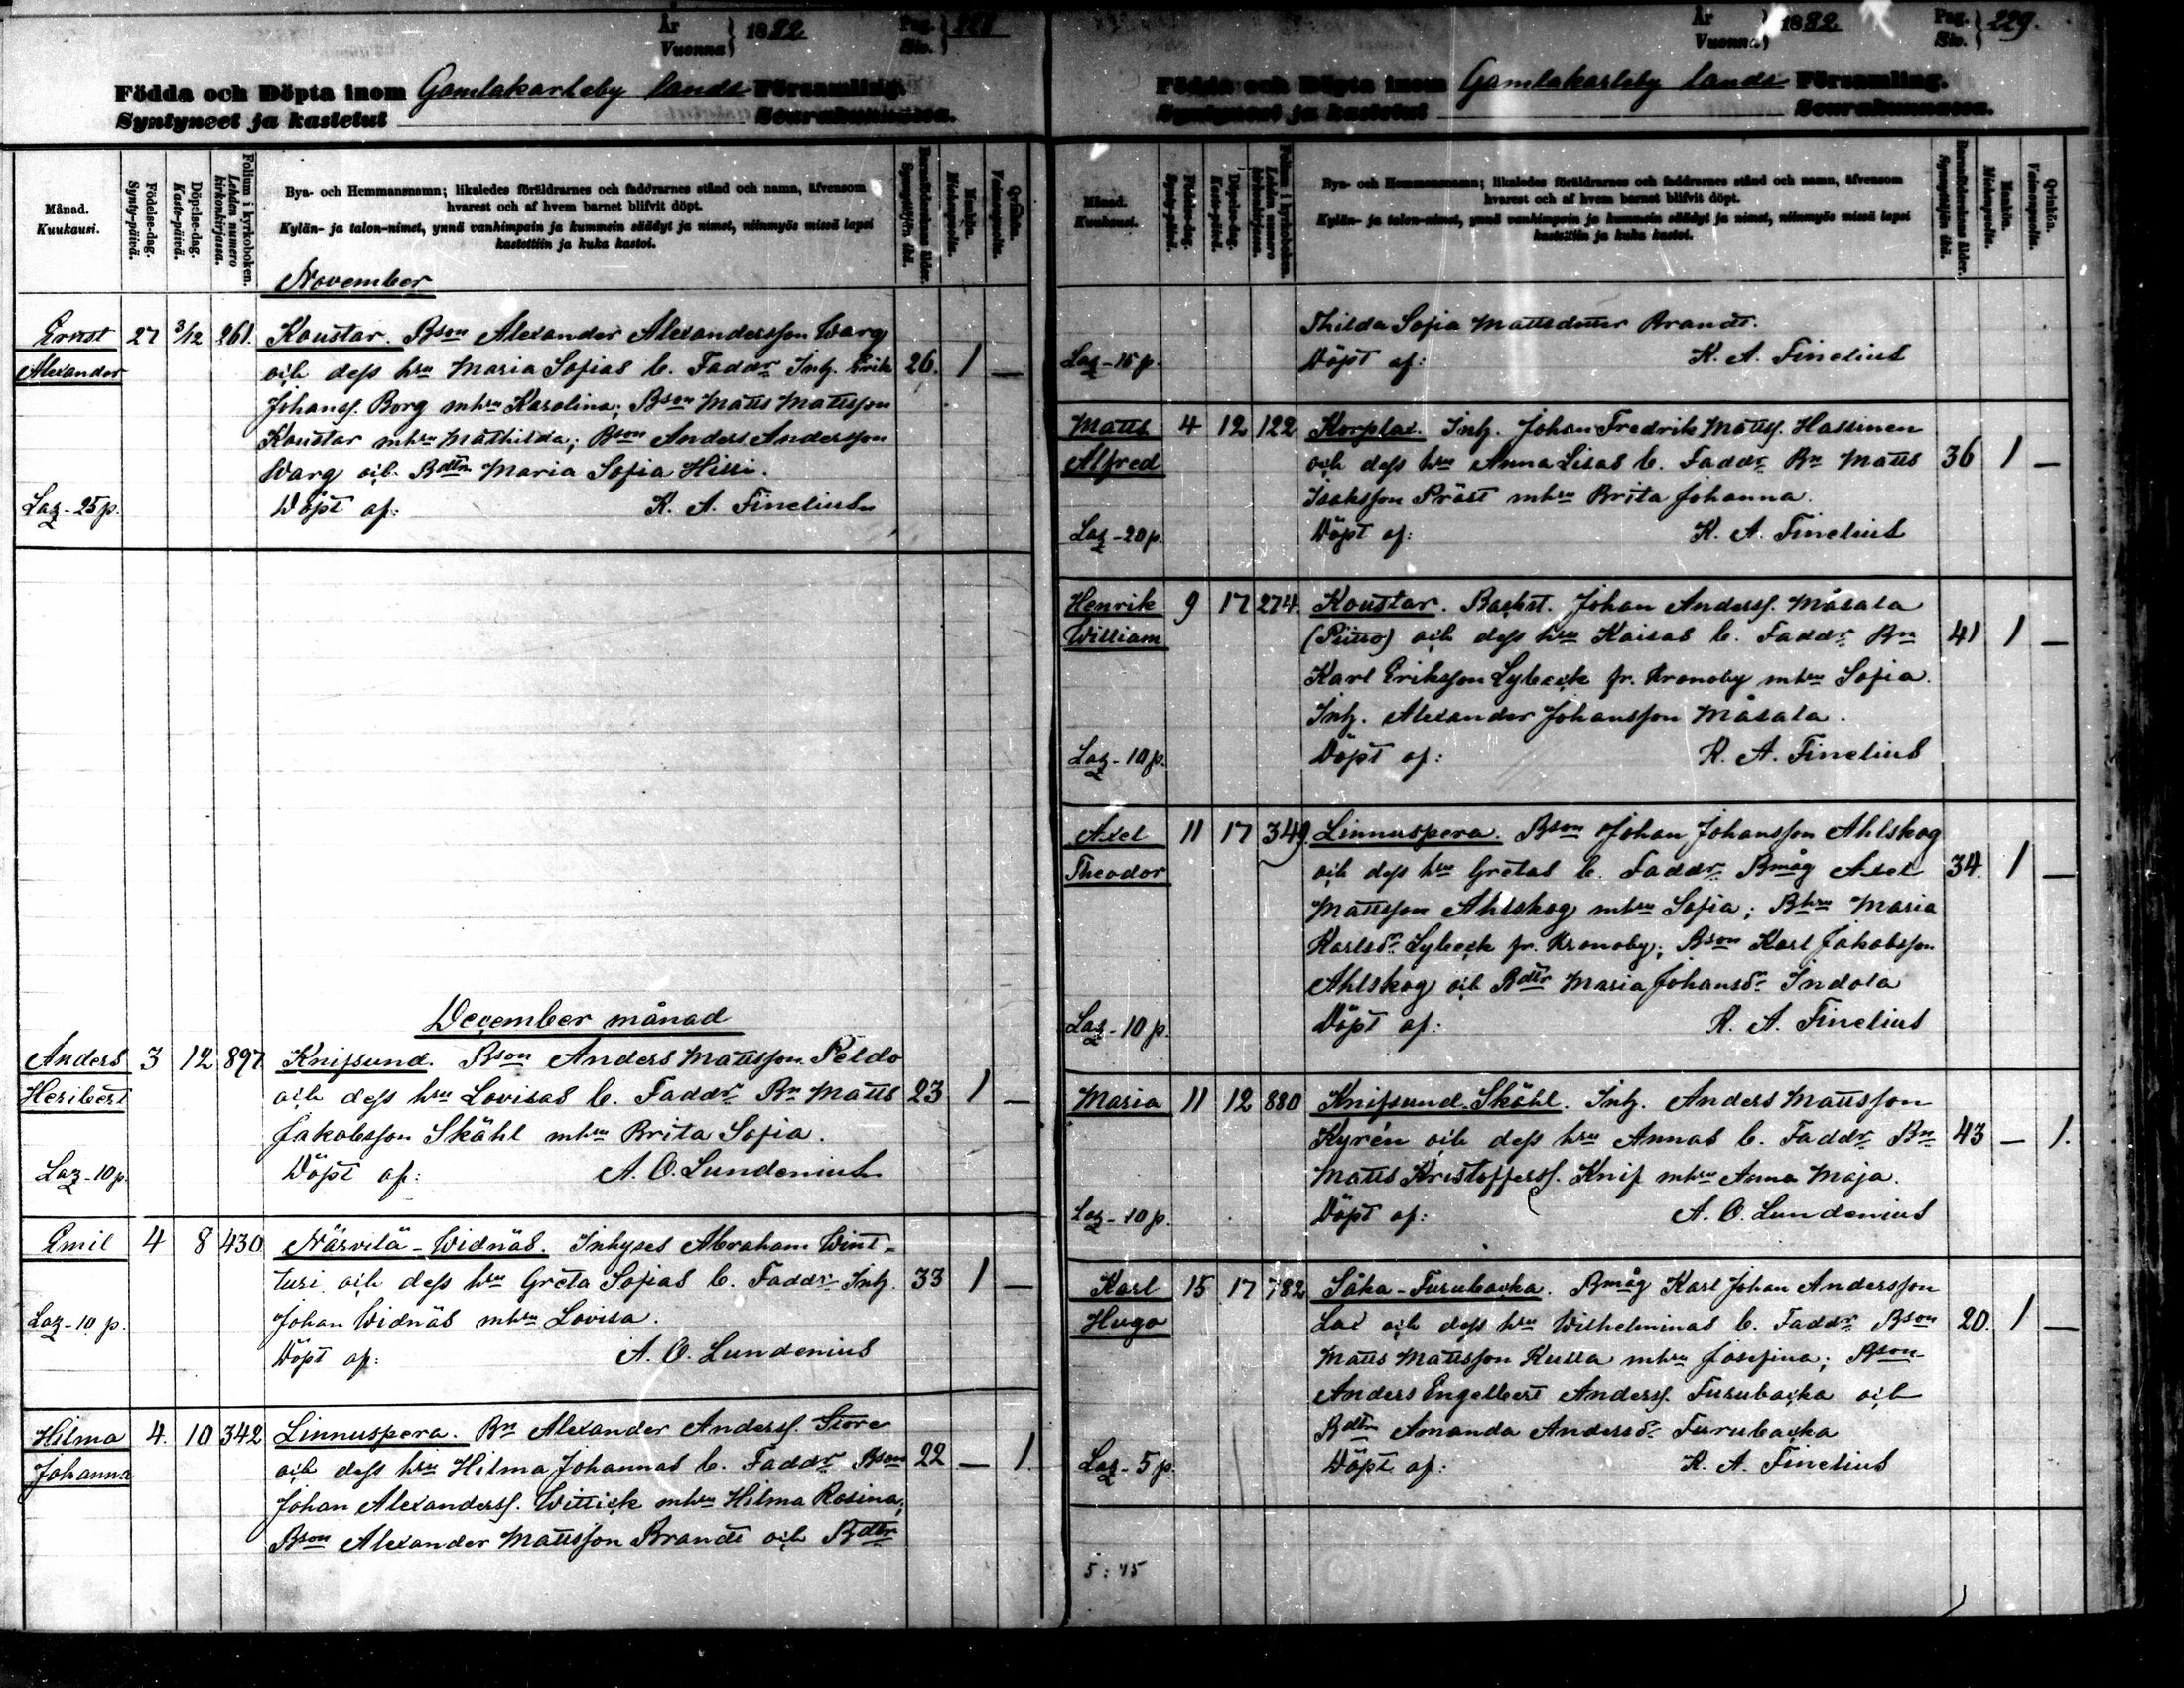 År
Vuonna } 1882
Pag.
Siv. } 228
Födda och Döpta inom Gamlakarleby lands Församling.
Syntyneet ja kastetut Seurakunnassa.
Månad.
Kuukausi.
Födelse-dag.
Synty-päivä.
Döpelse-dag.
Kaste-päivä.
Folium i kyrkoboken.
Lehden numero kirkonkirjassa.
Bya- och Hemmansnamn; likaledes föräldrarnes och faddrarnes stånd och namn, äfvensom
hvarest och af hvem barnet blifvit döpt.
Kylän- ja talon-nimet, ynnä vanhimpain ja kummein säädyt ja nimet, niinmyös missä lapsi
kastettiin ja kuka kastoi.
Barnaföderskans ålder.
Synnyttäjän ikä.
Mankön.
Miehenpuolia.
Qvinkön.
Vaimonpuolia.
November
Ernst 27 3/12 261. Koustar. Bson Alexander Alexandersson Warg
Alexander och dess hru Maria Sofias b. Faddr Inh. Erik 26. 1 —
Johanss. Borg mhru Karolina; Bson Matts Mattsson
Koustar mhru Mathilda; Bson Anders Andersson
Warg och Bdtr Maria Sofia Hissi.
Laz - 25 p. Döpt af: K. A. Finelius
December månad
Anders 3 12 897 Knifsund. Bson Anders Mattsson Peldo
Heribert och dess hru Lovisas b. Faddr Bn Matts 23 1 —
Jakobsson Skåhl mhru Brita Sofia.
Laz - 10 p. Döpt af: A. O. Lundenius
Emil 4 8 430 Närvilä - Widnäs. Inhyses Abraham Wint-
turi och dess hru Greta Sofias b. Faddr Inh. 33 1 —
Laz - 10 p. Johan Widnäs mhru Lovisa.
Döpt af: A. O. Lundenius
Hilma 4. 10 342 Linnuspera. Bn Alexander Anderss. Store
Johanna och dess hru Hilma Johannas b. Faddr Bson 22 — 1
Johan Alexanderss. Wittick mhru Hilma Rosina;
Bson Alexander Mattsson Brandt och Bdtr
År
Vuonna } 1882
Pag.
Siv. } 229.
Födda och Döpta inom Gamlakarleby lands Församling.
Syntyneet ja kastetut Seurakunnassa.
Månad.
Kuukausi.
Födelse-dag.
Synty-päivä.
Döpelse-dag.
Kaste-päivä.
Folium i kyrkoboken.
Lehden numero kirkonkirjassa.
Bya- och Hemmansnamn; likaledes föräldrarnes och faddrarnes stånd och namn, äfvensom
hvarest och af hvem barnet blifvit döpt.
Kylän- ja talon-nimet, ynnä vanhimpain ja kummein säädyt ja nimet, niinmyös missä lapsi
kastettiin ja kuka kastoi.
Barnaföderskans ålder.
Synnyttäjän ikä.
Mankön.
Miehenpuolia.
Qvinkön.
Vaimonpuolia.
Thilda Sofia Mattsdotter Brandt.
Laz - 15 p. Döpt af: K. A. Finelius
Matts 4 12 122 Korplax. Inh. Johan Fredrik Matts. Hassinen
Alfred och dess hru Anna Lisas b. Faddr Bn Matts 36 1 —
Isaksson Präst mhru Brita Johanna.
Laz - 20 p. Döpt af: K. A. Finelius
Henrik 9 17 274. Koustar. Backst. Johan Anderss. Måsala
William (Piitso) och dess hru Kaisas b. Faddr Bn 41 1 —
Karl Eriksson Lybeck fr. Kronoby mhru Sofia.
Inh. Alexander Johansson Måsala.
Laz - 10 p. Döpt af: K. A. Finelius
Axel 11 17 349. Linnuspera. Bson Johan Johansson Ahlskog
Theodor och dess hru Gretas b. Faddr Bmåg Axel 34. 1 —
Mattsson Ahlskog mhru Sofia; Bhru Maria
Karlsdr Lybeck fr. Kronoby; Bson Karl Jakobsson
Ahlskog och Bdtr Maria Johansdr Indola
Laz - 10 p. Döpt af: K. A. Finelius
Maria 11 12 880 Knifsund. Skåhl. Inh. Anders Mattsson
Kyrén och dess hru Annas b. Faddr Bn 43 — 1.
Matts Kristofferss. Knif mhru Anna Maja.
Laz - 10 p. Döpt af: A. O. Lundenius
Karl 15 17 782 Såka - Furubacka. Bmåg Karl Johan Andersson
Hugo Lax och dess hru Wilhelminas b. Faddr Bson 20. 1 —
Matts Mattsson Kulla mhru Josefina; Bson
Anders Engelbert Anderss. Furubacka och
Bdtr Amanda Andersdr Furubacka
Laz - 5 p. Döpt af: K. A. Finelius
5 : 45